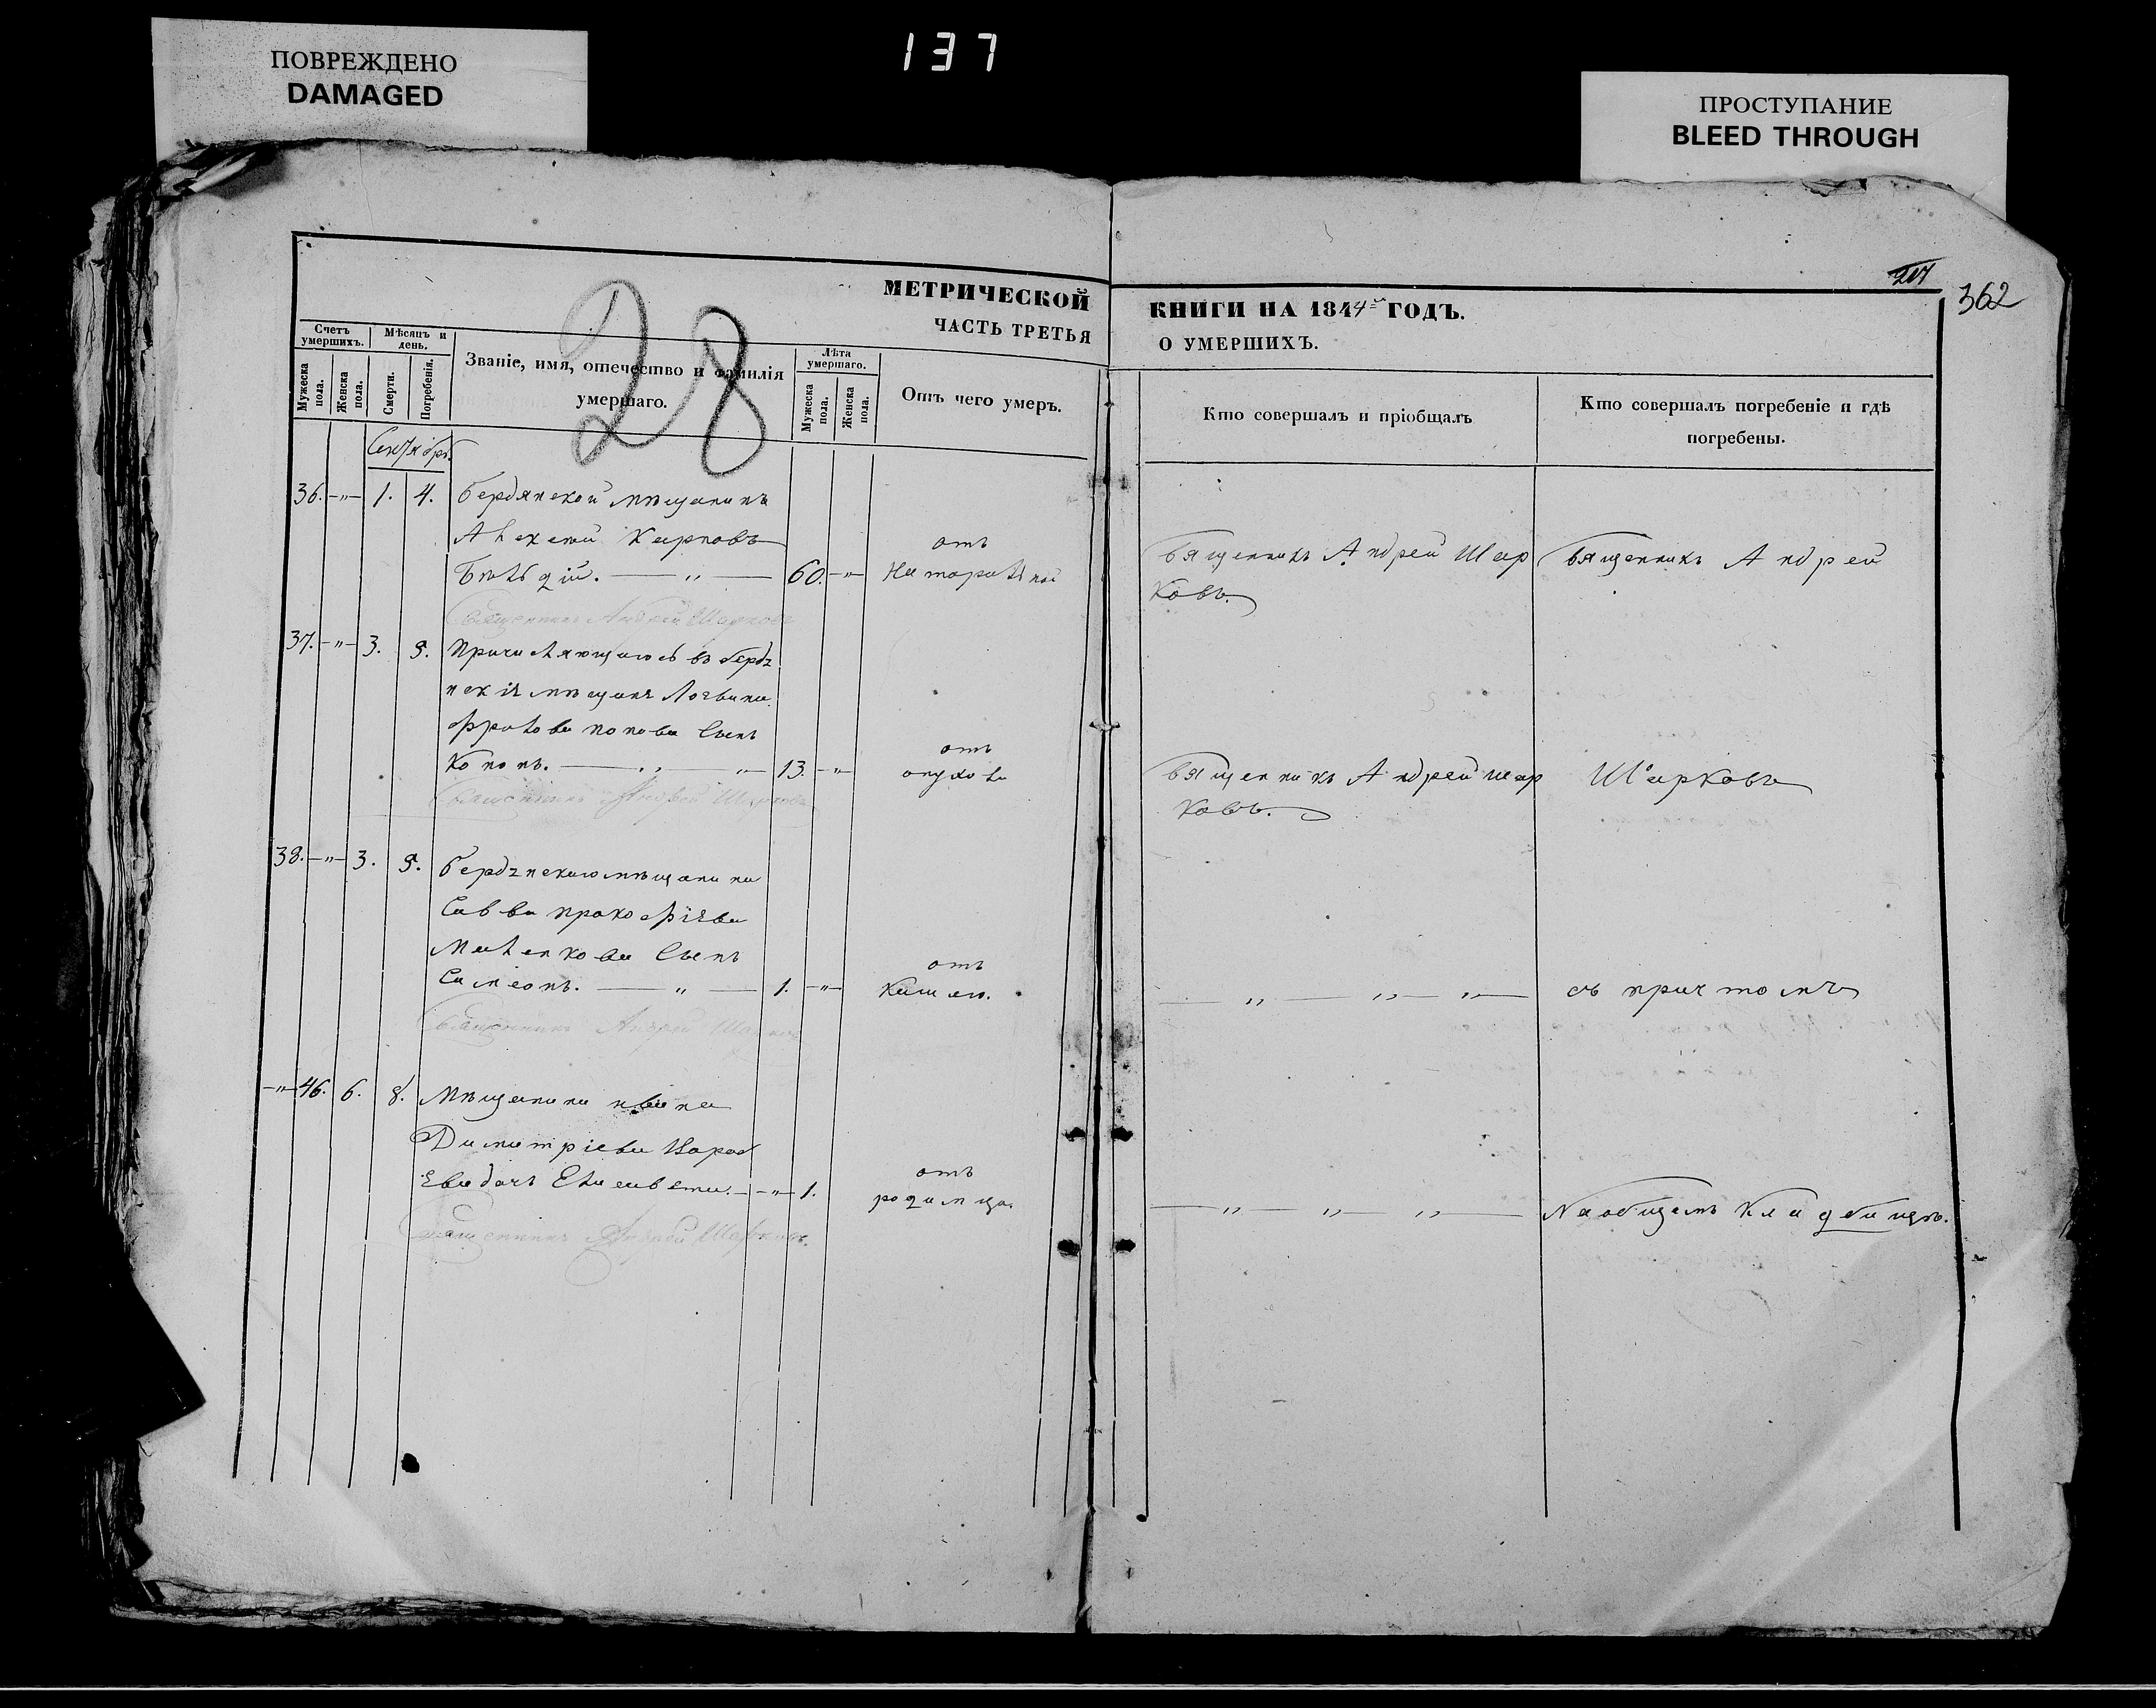 ПОВРЕЖДЕНО
DAMAGED
137
ПРОСТУПАНИЕ
BLEED THROUGH
28
217
362
МЕТРИЧЕСКОЙ
ЧАСТЬ ТРЕТЬЯ
КНИГИ НА 1844й ГОДЪ.
О УМЕРШИХЪ.
Счетъ умершихъ.
Мужеска пола.
Женска пола.
Мѣсяцъ и день.
Смерти.
Погребенія.
Званіе, имя, отечество и фамилія
умершаго.
Лѣта умершаго.
Мужеска пола.
Женска пола.
Отъ чего умеръ.
Кто совершалъ и пріобщалъ
Кто совершалъ погребеніе и гдѣ
погребены.
Сентябрь.
36. -„- 1. 4. Бердянской мѣщанинъ
Алексѣй Карповъ
60. -„-
отъ
Священникъ Андрей Шар
ковъ.
Священникъ Андрей
Священникъ Андрей Шарковъ
37. -„- 3. 5. Причисляющагось въ бердя
нскіе мѣщане
попова сынъ
Кононъ. — „ — „ — 13. -„-
отъ
Священникъ Андрей Шар
ковъ.
Шарковъ
Священникъ Андрей Шарковъ
38. -„- 3. 5. Бердянскаго мѣщанина
Саввы Прокофіева
сынъ
Симеонъ. — „ — 1. -„-
отъ
кашлю.
— „ — „ — „ —
съ причтомъ
Священникъ Андрей Шарковъ
-„- 46. 6. 8. Мѣщанина Ивана
Димитріева
дочь Елисавета. - -„- 1.
отъ
родимца.
— „ — „ — „ —
На общемъ кладбищѣ.
Священникъ Андрей Шарковъ.